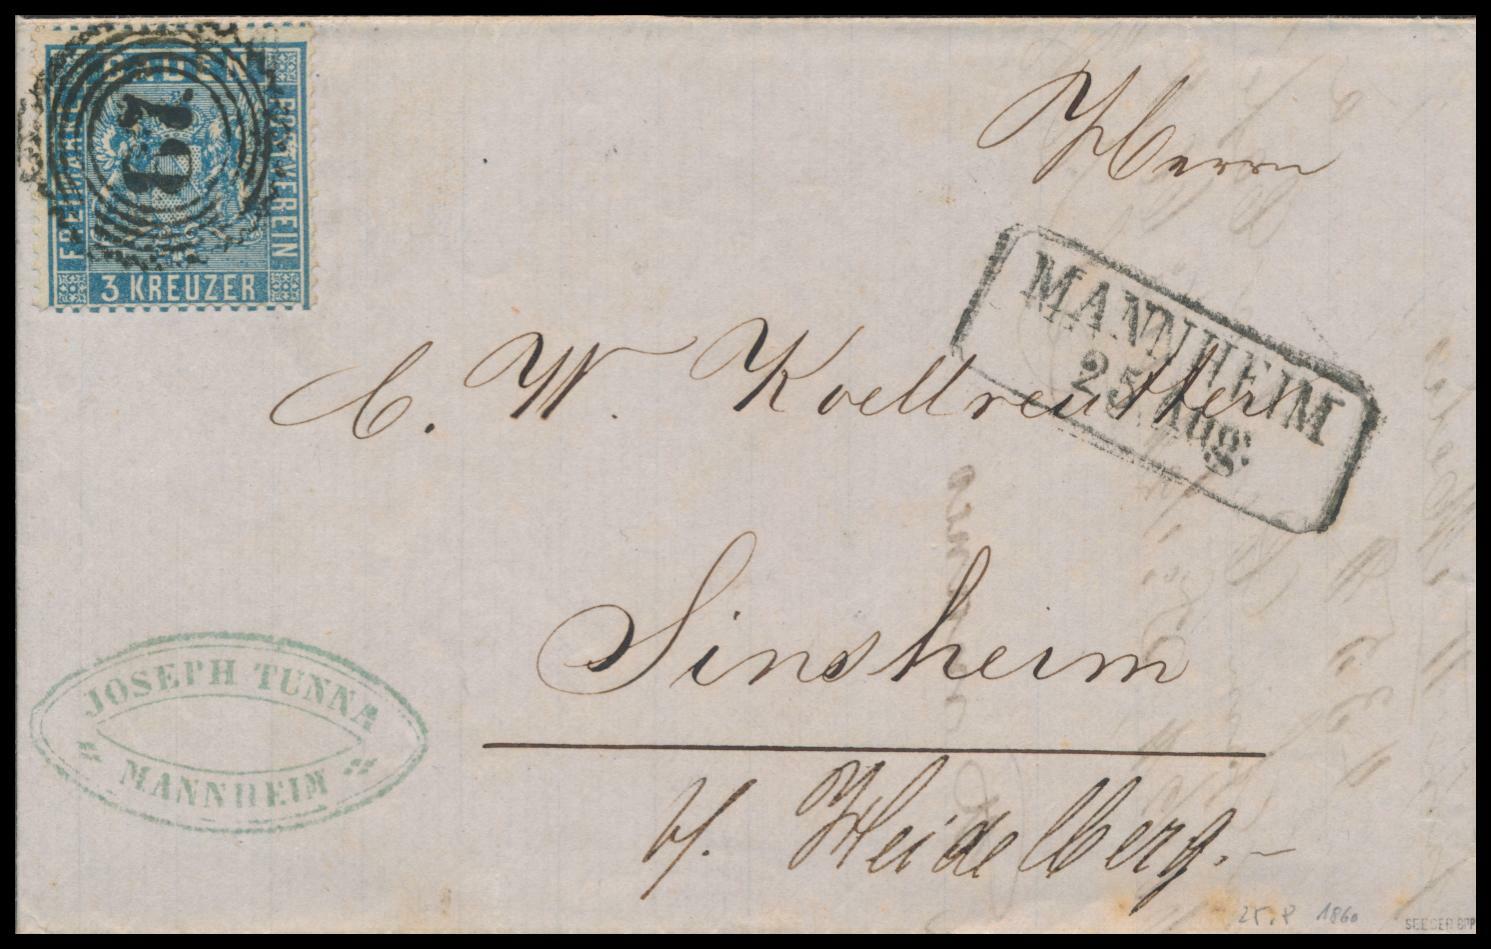 BADEN
FREIMARKE
POSTVEREIN
3 KREUZER
Herrn
MANNHEIM
25 Aug.
C. W. Koellreutter
Sinsheim
b/. Heidelberg.–
JOSEPH TUNNA
MANNHEIM
1860
SEEGER BPP